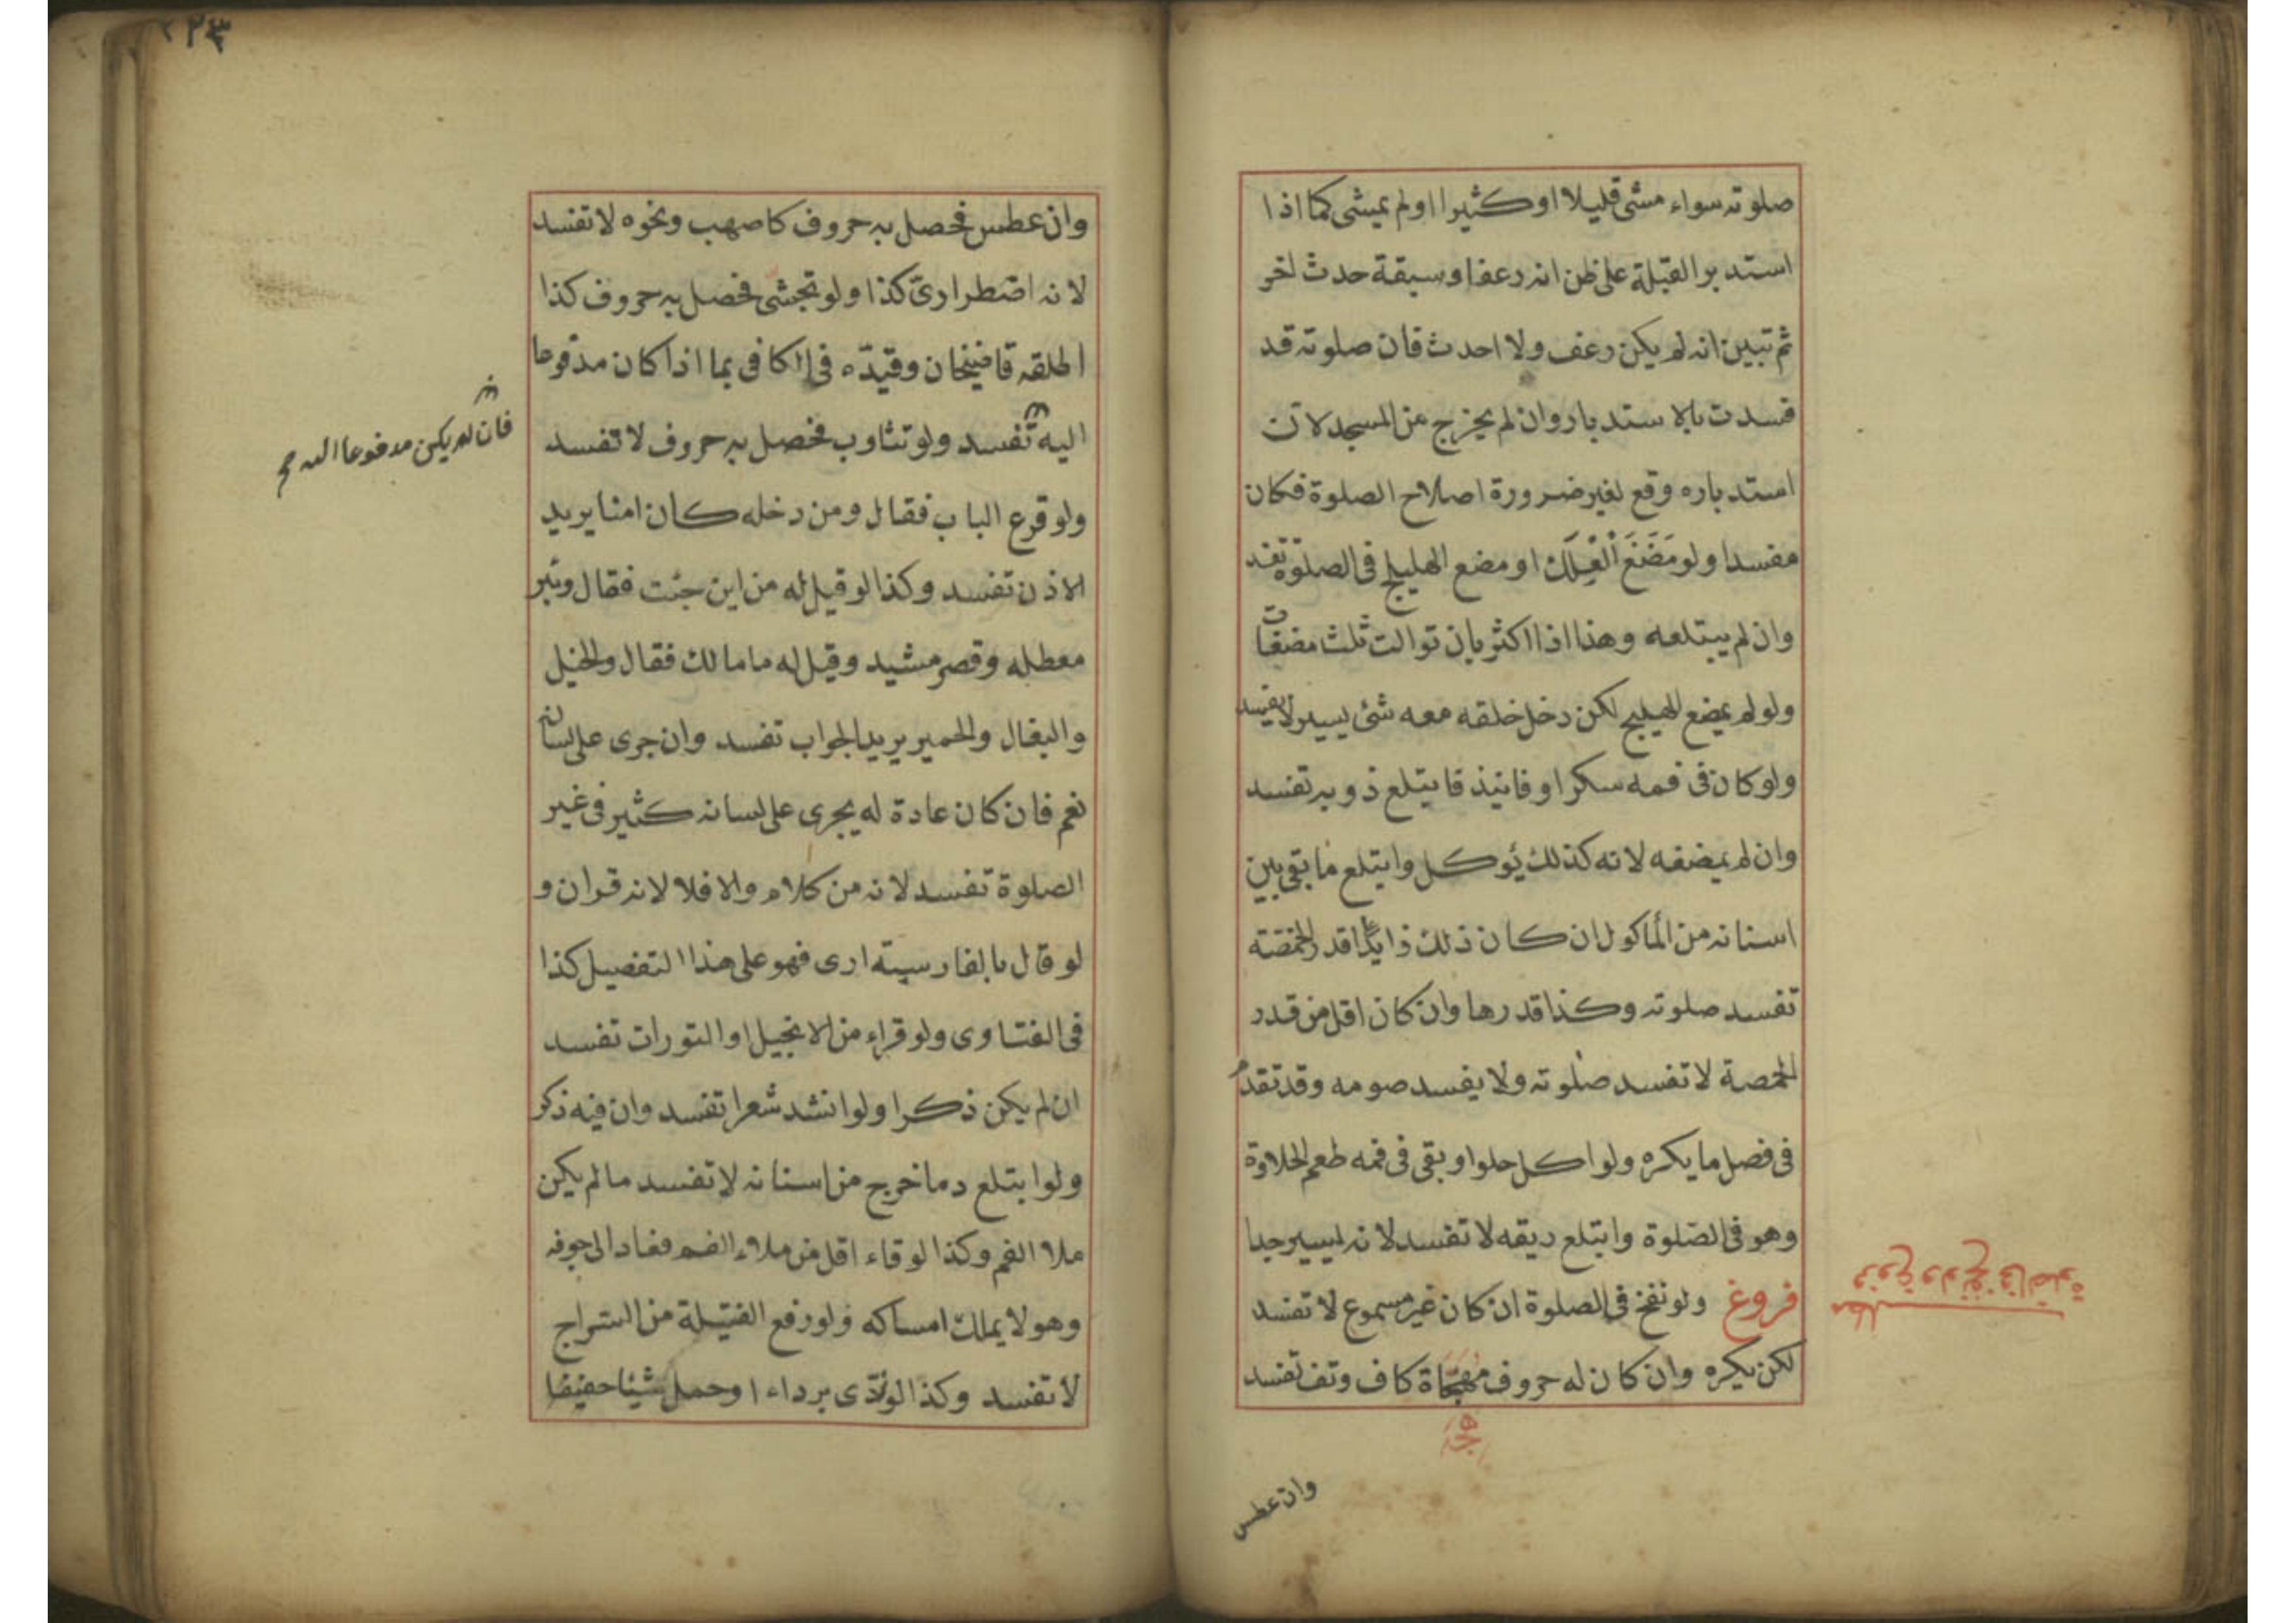 صلوته سواء مشى قليلا او كثيرا او لم يمشى كما اذا
استدبر القبلة على ظن انه رعف او سبقة حدث اخر
ثم تبين انه لم يكن رعف ولا احدث فان صلوته قد
فسدت بالاستدبار وان لم يخرج من المسجد لان
استدباره وقع لغير ضرورة اصلاح الصلوة فكان
مفسدا ولو مَضَغَ الْعِلَكَ او مضع الهليلج فى الصلوة تفسد
وان لم يبتلعه وهذا اذا اكثر بان توالت ثلث مضغات
ولو لم يمضع الهليلج لكن دخل خلقه معه شئ يسير لا يفسد
ولو كان فى فمه سكر او فانيذ فابتلع ذوبه تفسد
وان لم يمضفه لانه كذلك يؤكل وابتلع ما بقى بين
اسنانه من المأكول ان كان ذلك زايدًا قدر الحمصة
تفسد صلوته وكذا قدرها وان كان اقل من قدر
الحمصة لا تفسد صلوته ولا يفسد صومه وقد تقدم
فى فصل ما يكره ولو اكل حلوا وبقى فى فمه طعم الحلاوة
وهو فى الصلوة وابتلع ريقه لا تفسد لانه ليسير جدا
فروغ ولو نفخ فى الصلوة ان كان غير مسموع لا تفسد
لكن يكره وان كان له حروف مهجاة كاف وتف تفسد
وان عطس
وان عطس فحصل به حروف كاصهب ونحوه لا تفسد
لانه اضطرارىّ كذا ولو تجشّى فحصل به حروف كذا
اطلقه قاضيخان وقيّده فى الكافى بما اذا كان مدفوعا
اليه تفسد ولو تثاوب فحصل به حروف لا تفسد
فان لم يكن مدفوعا اليه صح
ولو قرع الباب فقال ومن دخله كان امنا يريد
الاذن تفسد وكذا لو قيل له من اين جئت فقال وبئر
معطله وقصر مشيد وقيل له ما مالك فقال والخيل
والبغال والحمير يريد الجواب تفسد وان جرى على لسانه
نعم فان كان عادة له يجرى على لسانه كثير فى غير
الصلوة تفسد لانه من كلام والا فلا لانه قران و
لو قال بالفارسيته ارى فهو على هذا التفصيل كذا
فى الفتاوى ولو قراء من الانجيل او التورات تفسد
ان لم يكن ذكرا ولو انشد شعرا تفسد وان فيه ذكر
ولو ابتلع دما خرج من اسنانه لا تفسد ما لم يكن
ملا الفم وكذا لو قاء اقل من ملاء الفم فعاد الى جوفه
وهو لا يملك امساكه ولو رفع الفتيلة من السراج
لا تفسد وكذا لو تردّى برداء او حمل شيئا حفيفا